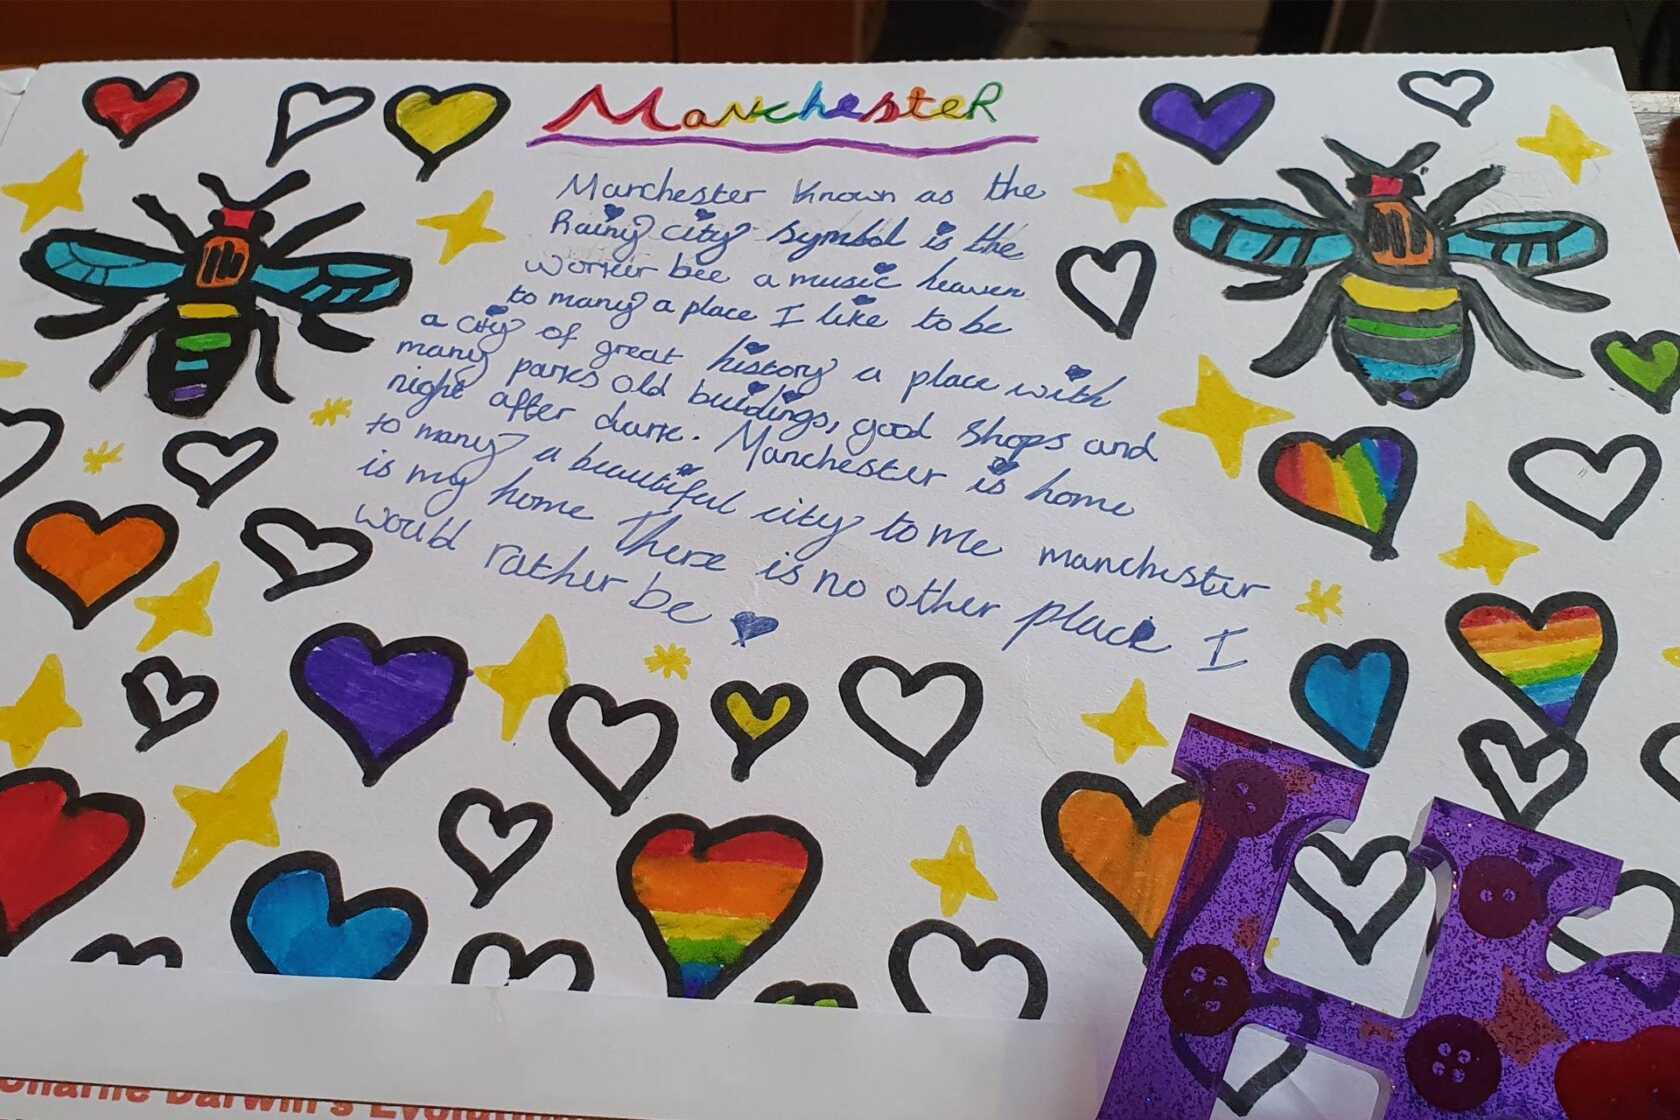 Manchester
Manchester known as the
Rainy city symbol is the
worker bee a music heaven
to many a place I like to be
a city of great history a place with
many parks old buildings, good shops and
night after dark. Manchester is home
to many a beautiful city to me manchester
is my home There is no other place I
would rather be
Charlie Darwin's Evolution